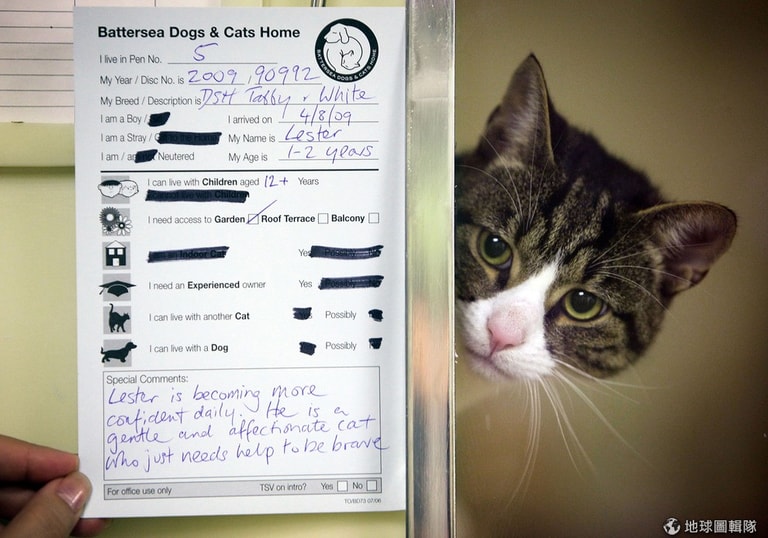 Battersea Dogs & Cats Home
BATTERSEA DOGS & CATS HOME
I live in Pen No. 5
My Year / Disc No. is 2009 / 90992
My Breed / Description is DSH Tabby + White
I am a Boy / I arrived on 4/8/09
I am a Stray / My Name is Lester
I am / Neutered My Age is 1-2 years
I can live with Children aged 12+ Years
I need access to Garden Roof Terrace Balcony
Yes
I need an Experienced owner Yes
I can live with another Cat Possibly
I can live with a Dog Possibly
Special Comments:
Lester is becoming more
confident daily. He is a
gentle and affectionate cat
who just needs help to be brave
For office use only TSV on intro? Yes No
TO/BD73 07/06
地球圖輯隊